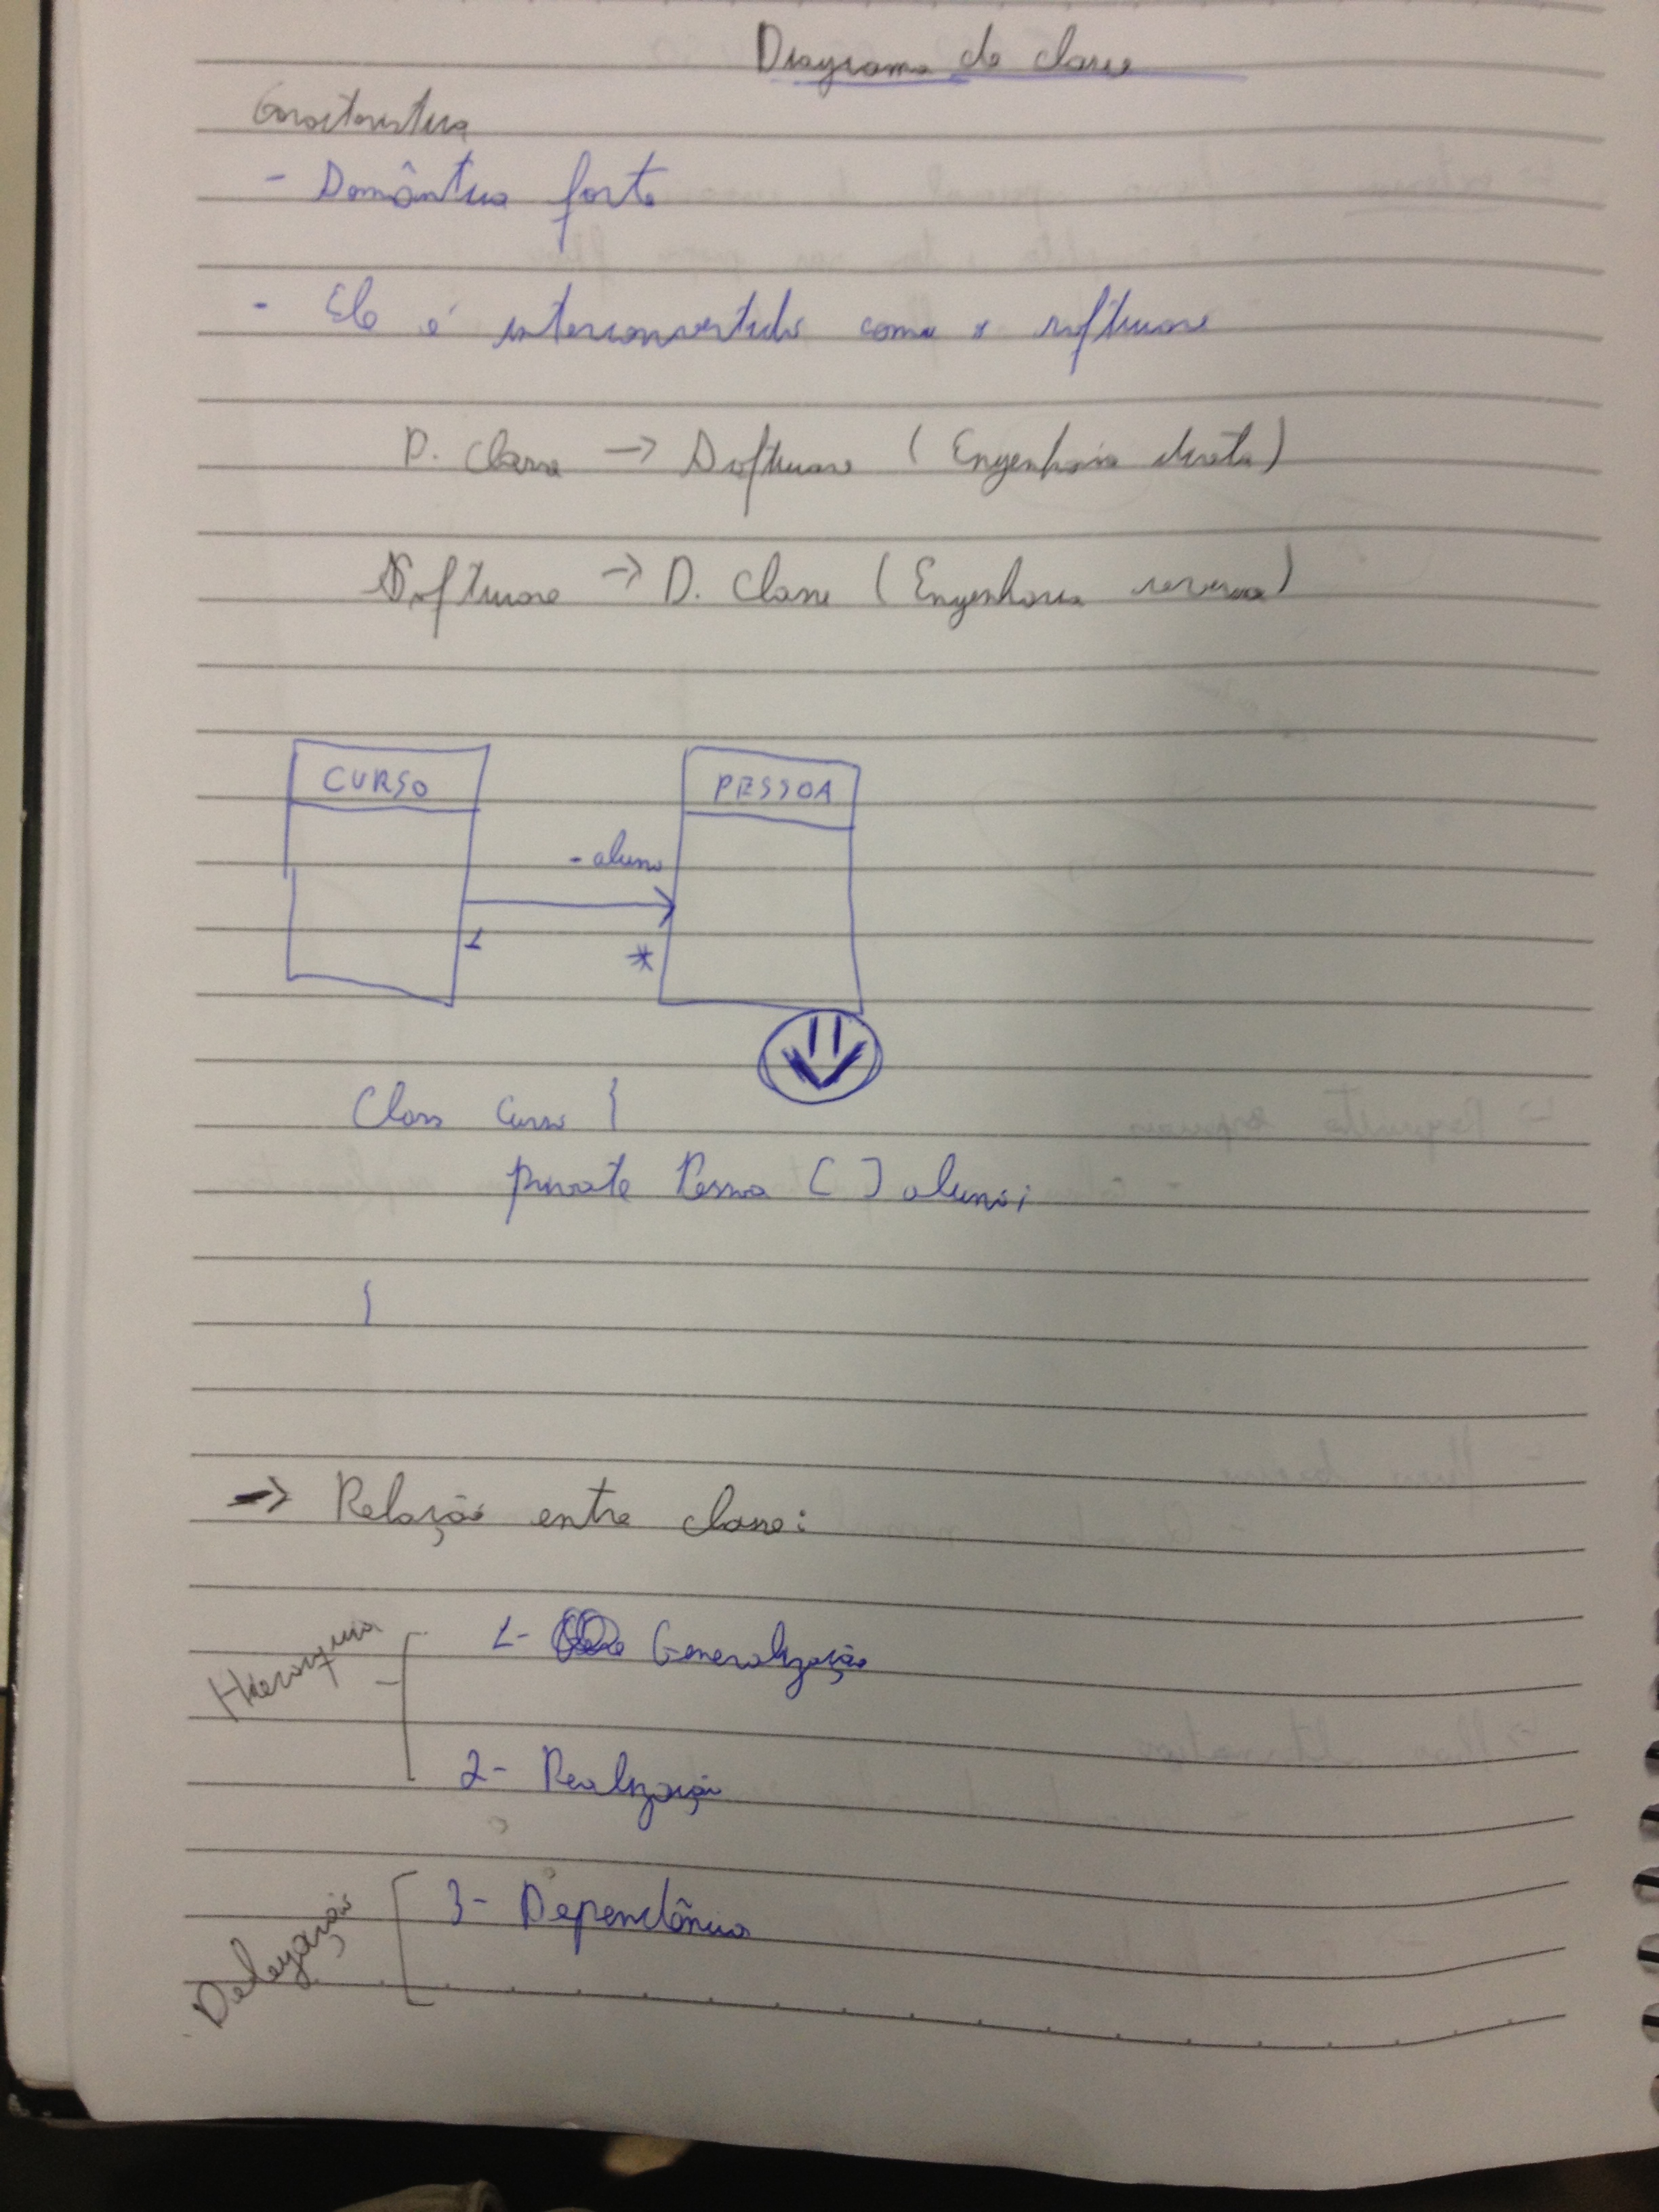 Diagrama de classe
Caracteristica
- Semântica forte
- Ele é interconvertido como o software
D. Classe → Software (Engenharia direta)
Software → D. Classe (Engenharia reversa)
CURSO
PESSOA
- aluno
1
*
Class Curso {
private Pessoa [ ] aluno;
}
→ Relação entre classe:
Hierarquia
1- Generalização
2- Realização
Delegação
3- Dependência